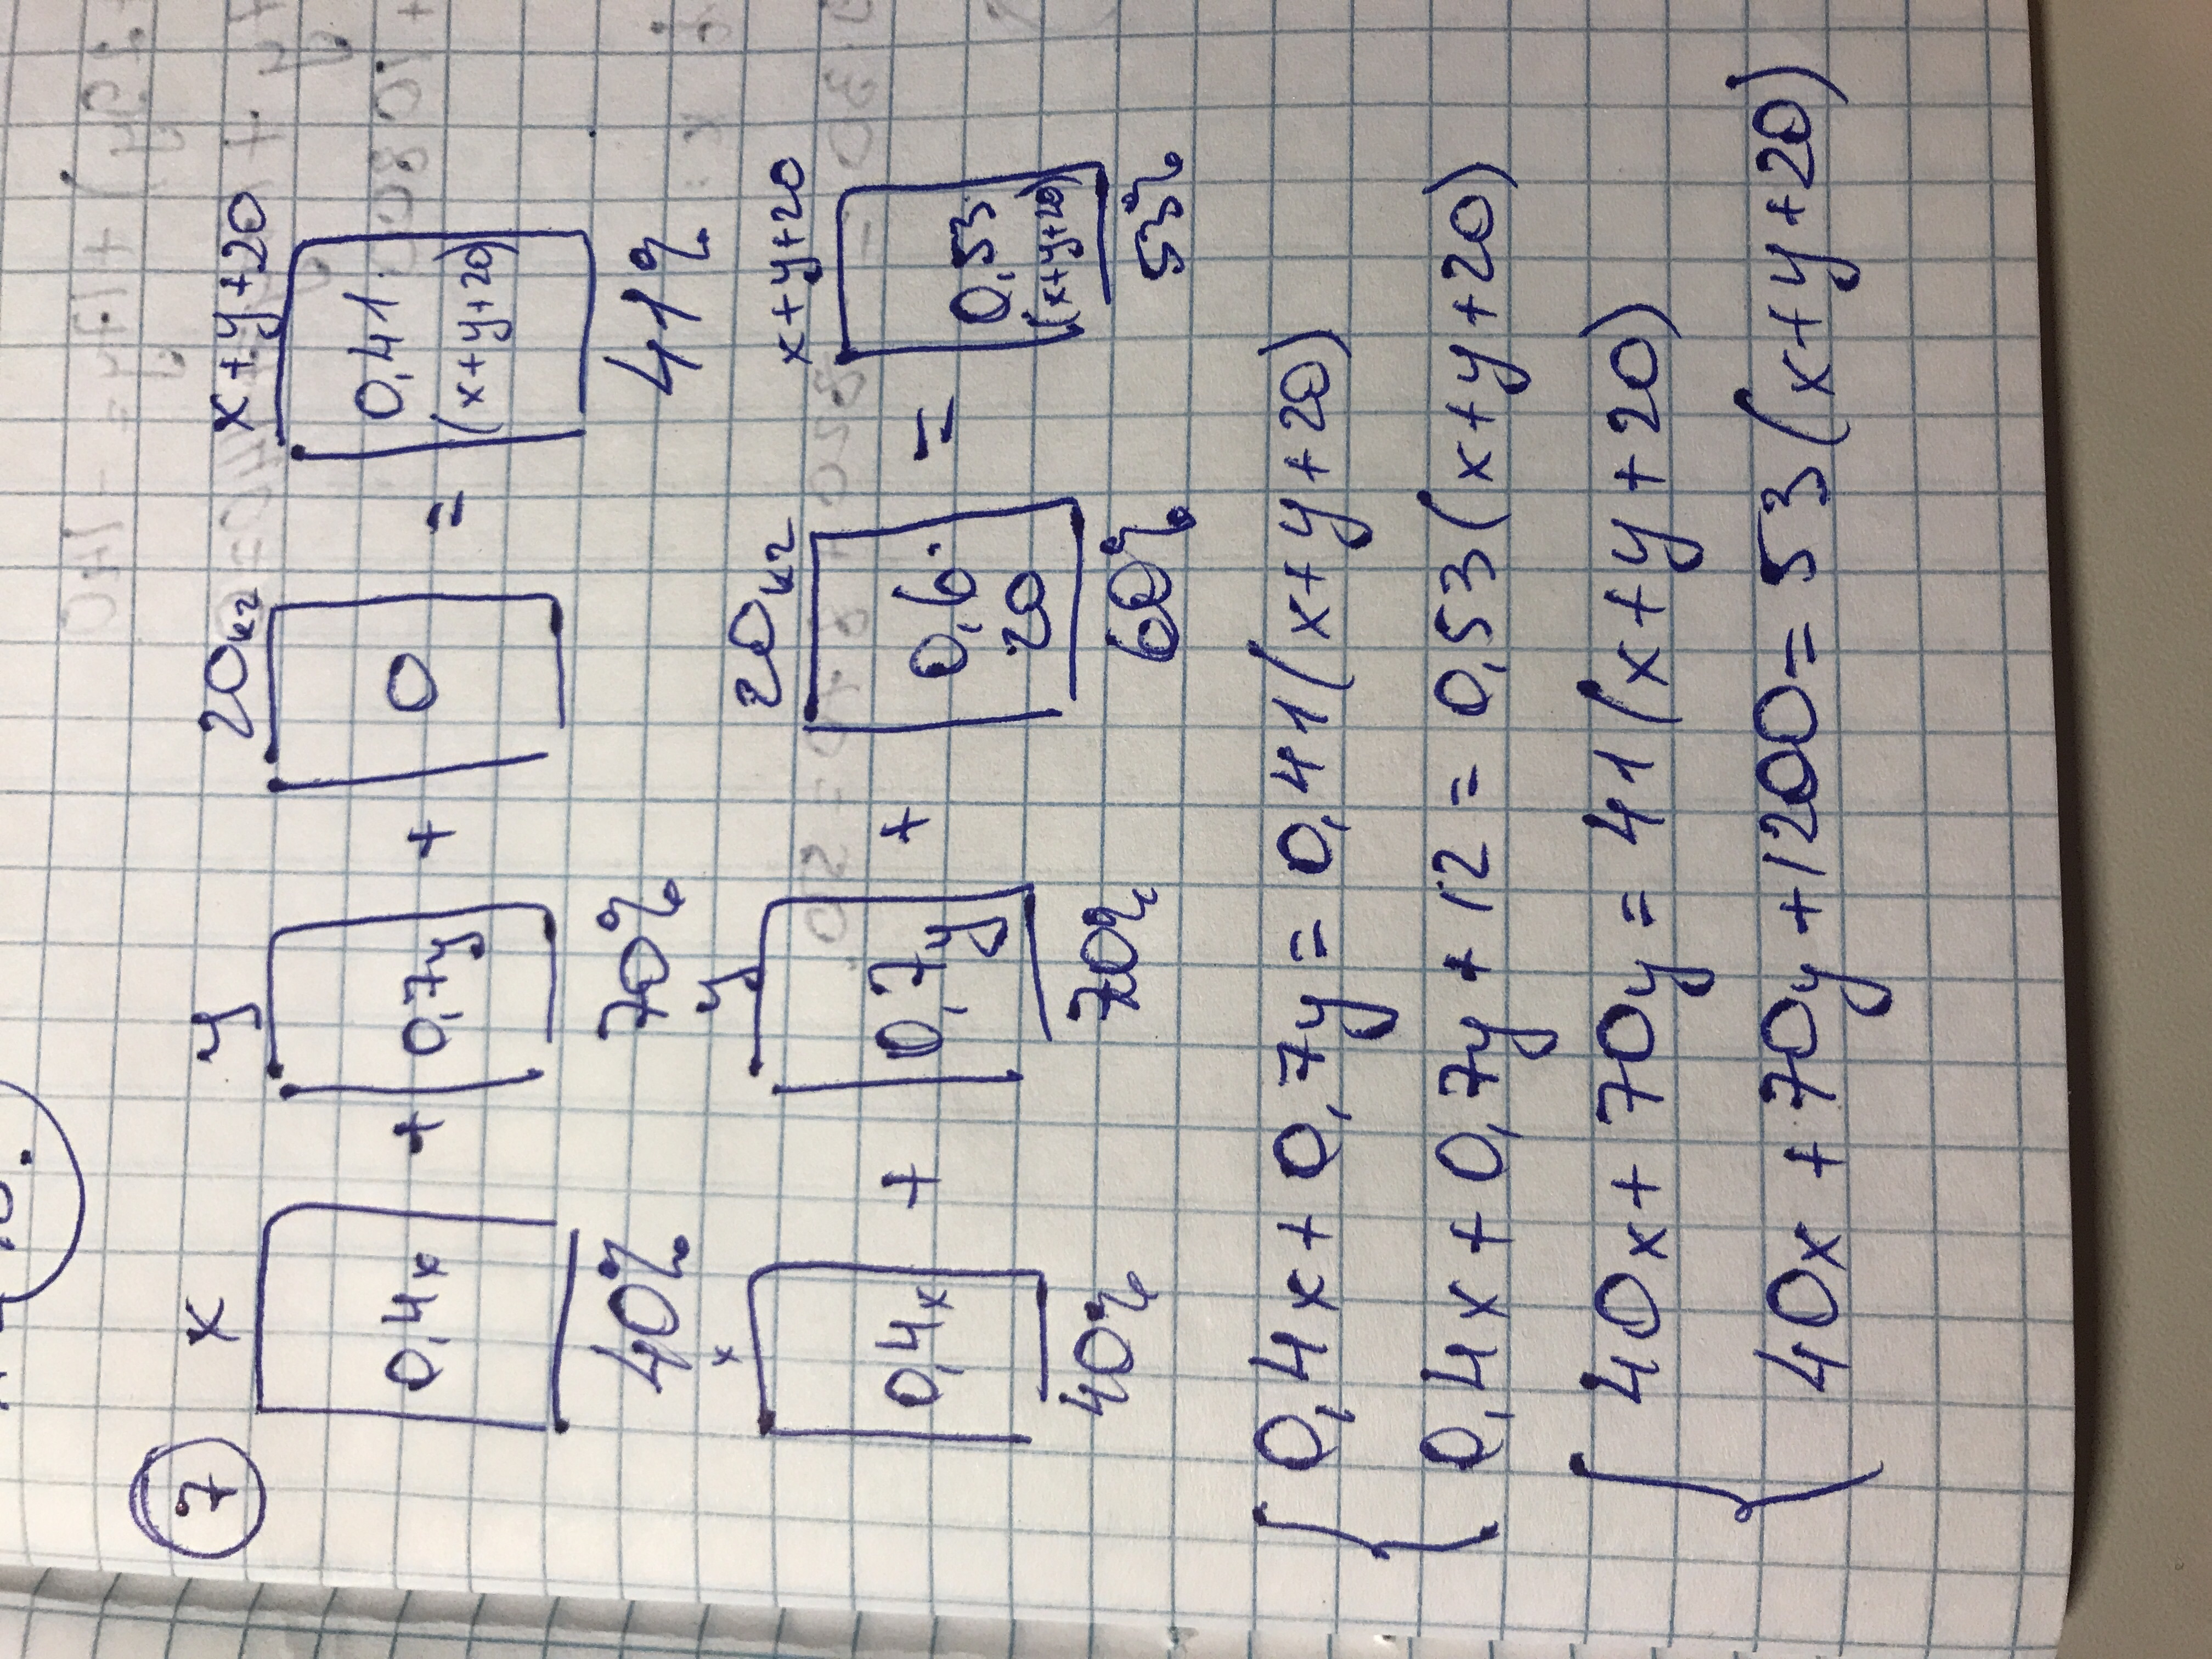 7
x y 20кг x+y+20
0,4x + 0,7y + 0 = 0,41·
(x+y+20)
40% 70% 41%
x y 20кг x+y+20
0,4x + 0,7y + 0,6· = 0,53·
20 (x+y+20)
40% 70% 60% 53%
{ 0,4x + 0,7y = 0,41(x+y+20)
0,4x + 0,7y + 12 = 0,53(x+y+20)
{ 40x + 70y = 41(x+y+20)
40x + 70y + 1200 = 53(x+y+20)